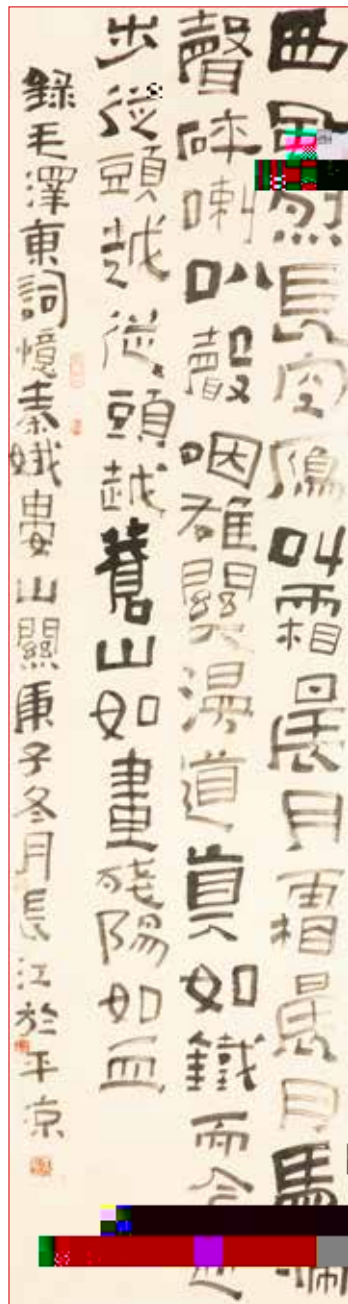 西風烈長空鴈叫霜晨月霜晨月馬
聲碎喇叭聲咽雄關漫道真如鐵而今
步從頭越從頭越蒼山如畫殘陽如血
錄毛澤東詞憶秦娥婁山關庚子冬月長江於平涼